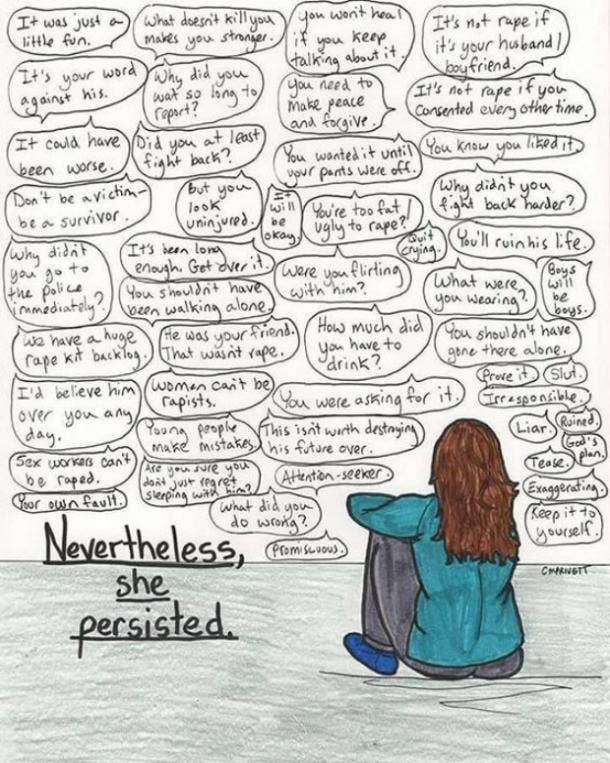 It was just a
little fun.
What doesn't kill you
makes you stronger.
You won't heal
if you keep
talking about it.
It's not rape if
it's your husband/
boyfriend.
It's your word
against his.
Why did you
wait so long to
report?
You need to
make peace
and forgive.
It's not rape if you
consented every other time.
It could have
been worse.
Did you at least
fight back?
You wanted it until
your pants were off.
You know you liked it.
Don't be a victim-
be a survivor.
But you
look
uninjured.
It
will
be
okay.
You're too fat/
ugly to rape?
Why didn't you
fight back harder?
Quit
crying.
You'll ruin his life.
Why didnt
you go to
the police
immediately?
It's been long
enough. Get over it.
You shouldn't have
been walking alone.
Were you flirting
with him?
What were
you wearing?
Boys
will
be
boys.
We have a huge
rape kit backlog.
He was your friend.
That wasnt rape.
How much did
you have to
drink?
You shouldn't have
gone there alone.
Prove it.
Slut.
I'd believe him
over you any
day.
Women can't be
rapists.
You were asking for it.
Irresponsible.
Liar.
Ruined.
Young people
make mistakes.
This isn't worth destroying
his future over.
God's
plan.
Tease.
Sex workers can't
be raped.
Are you sure you
dont just regret
sleeping with him?
Attention-seeker.
Exaggerating.
Your own fault.
What did you
do wrong?
Keep it to
yourself.
Promiscuous.
CMARNETT
Nevertheless,
she
persisted.